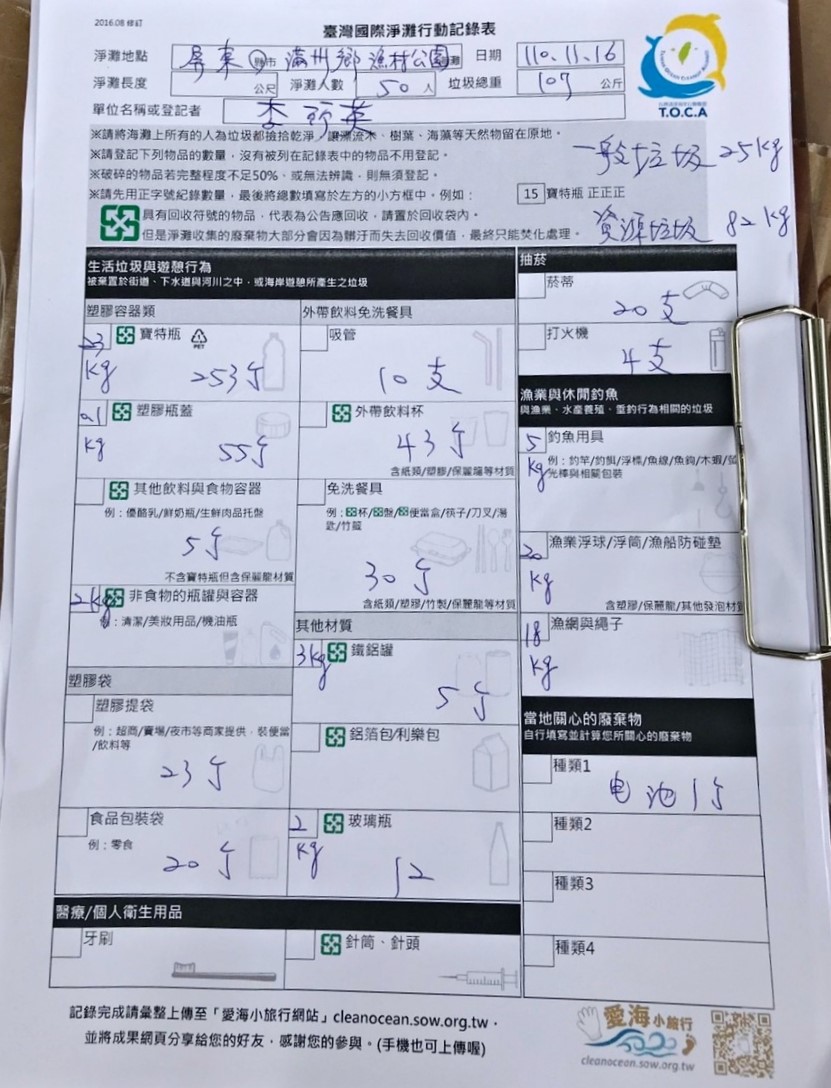 2016.08 修訂
臺灣國際淨灘行動記錄表
淨灘地點 屏東 縣市 滿州鄉漁村公園 灘 日期 110.11.16
淨灘長度 公尺 淨灘人數 50 人 垃圾總重 107 公斤
單位名稱或登記者 李 英
T.O.C.A
※請將海灘上所有的人為垃圾都撿拾乾淨,讓漂流木、樹葉、海藻等天然物留在原地。
※請登記下列物品的數量,沒有被列在記錄表中的物品不用登記。
一般垃圾 25kg
※破碎的物品若完整程度不足50%、或無法辨識,則無須登記。
※請先用正字號紀錄數量,最後將總數填寫於左方的小方框中。例如: 15 寶特瓶 正正正
具有回收符號的物品,代表為公告應回收,請置於回收袋內。
但是淨灘收集的廢棄物大部分會因為髒汙而失去回收價值,最終只能焚化處理。
資源垃圾 82kg
生活垃圾與遊憩行為
被棄置於街道、下水道與河川之中,或海岸遊憩所產生之垃圾
塑膠容器類
23 kg 寶特瓶 PET
253个
0.1 kg 塑膠瓶蓋
55个
其他飲料與食物容器
例:優酪乳/鮮奶瓶/生鮮肉品托盤
5个
不含寶特瓶但含保麗龍材質
2kg 非食物的瓶罐與容器
例:清潔/美妝用品/機油瓶
塑膠袋
塑膠提袋
例:超商/賣場/夜市等商家提供,裝便當
/飲料等
23个
食品包裝袋
例:零食
20个
外帶飲料免洗餐具
吸管
10支
外帶飲料杯
43个
含紙類/塑膠/保麗龍等材質
免洗餐具
例:杯/盤/便當盒/筷子/刀叉/湯
匙/竹籤
30个
含紙類/塑膠/竹製/保麗龍等材質
其他材質
3kg 鐵鋁罐
5个
鋁箔包/利樂包
2 kg 玻璃瓶
12
醫療/個人衛生用品
牙刷
針筒、針頭
抽菸
菸蒂
20支
打火機
4支
漁業與休閒釣魚
與漁業、水產養殖、垂釣行為相關的垃圾
5 kg 釣魚用具
例:釣竿/釣餌/浮標/魚線/魚鉤/木蝦/螢
光棒與相關包裝
20 kg 漁業浮球/浮筒/漁船防碰墊
含塑膠/保麗龍/其他發泡材質
18 kg 漁網與繩子
當地關心的廢棄物
自行填寫並計算您所關心的廢棄物
種類1
电池1个
種類2
種類3
種類4
記錄完成請彙整上傳至「愛海小旅行網站」cleanocean.sow.org.tw,
並將成果網頁分享給您的好友,感謝您的參與。(手機也可上傳喔)
愛海小旅行
cleanocean.sow.org.tw